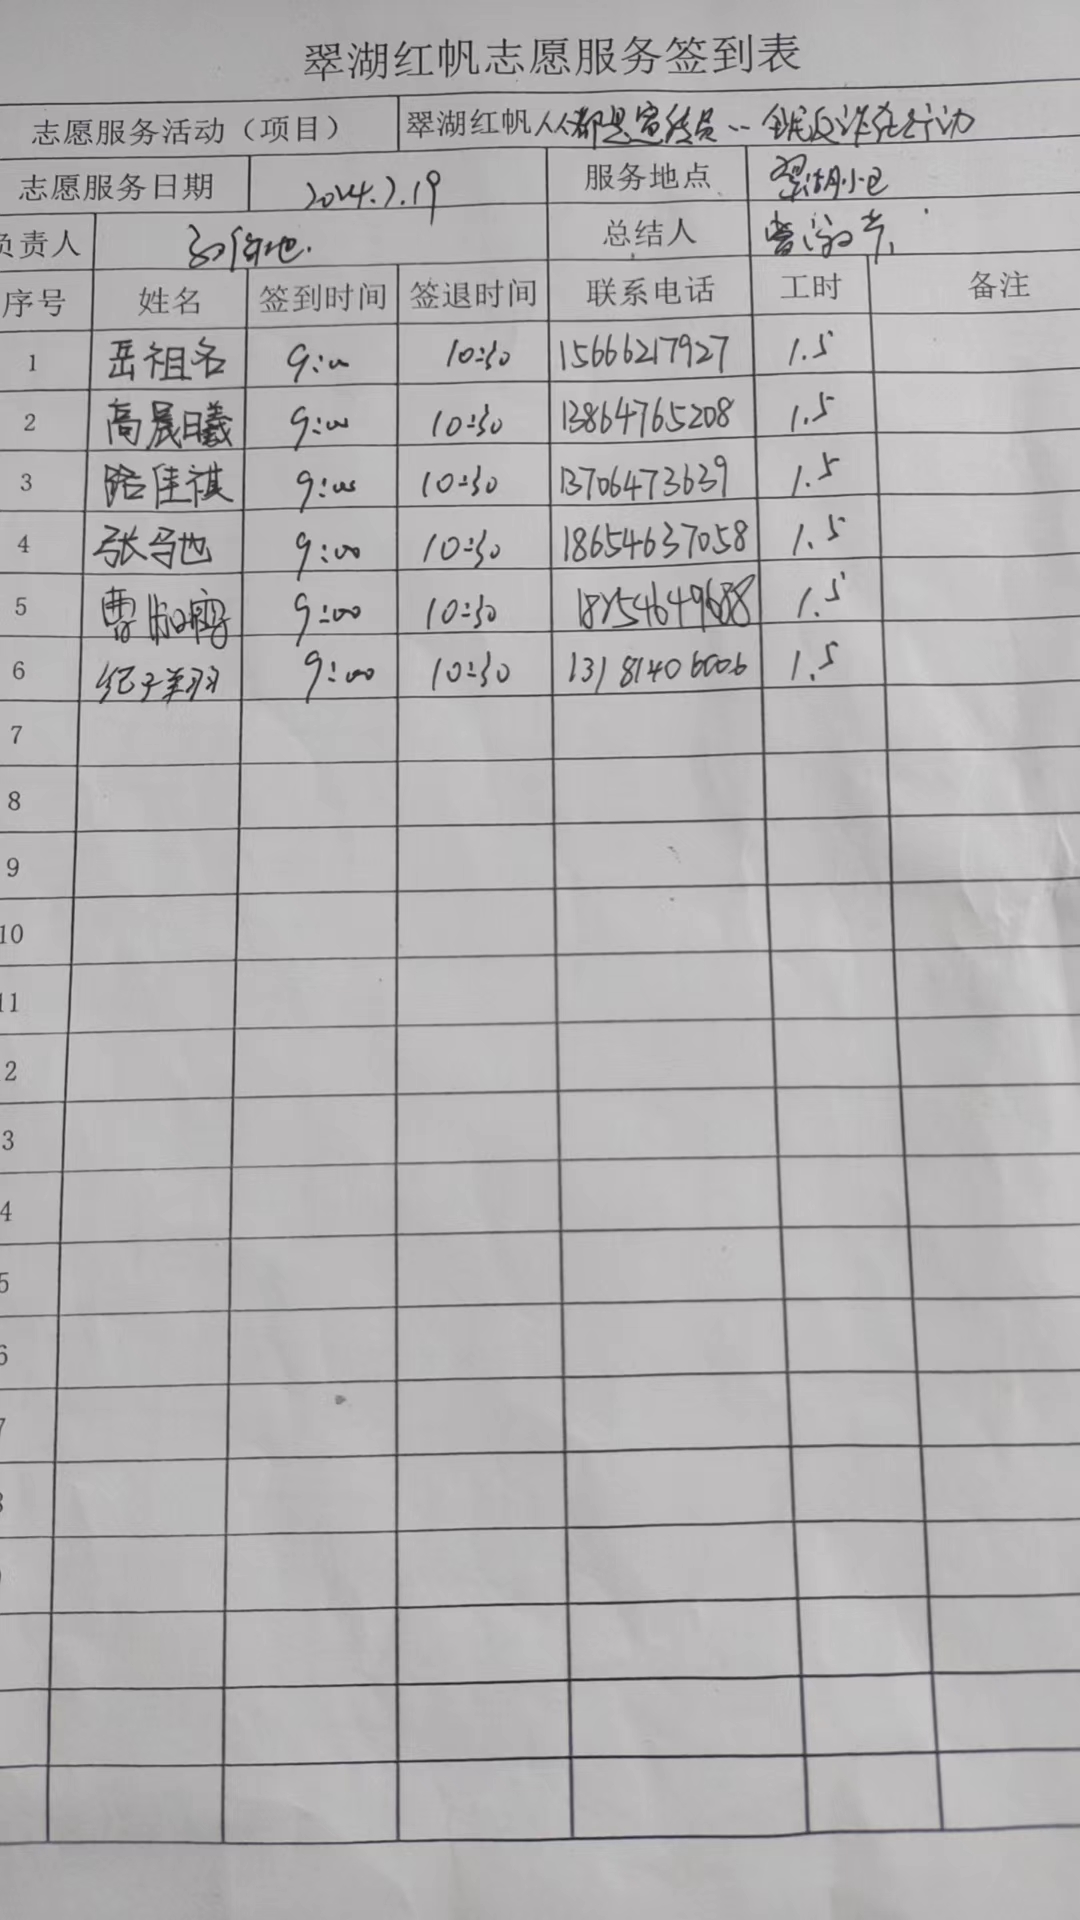 翠湖红帆志愿服务签到表
志愿服务活动（项目） 翠湖红帆人人都是宣传员 全民反诈在行动
志愿服务日期 2024.7.19 服务地点 翠湖小区
负责人 总结人 曹
序号 姓名 签到时间 签退时间 联系电话 工时 备注
1 岳祖名 9:00 10:30 15666217927 1.5
2 高晨曦 9:00 10:30 13864765208 1.5
3 路佳祺 9:00 10:30 13706473639 1.5
4 张马也 9:00 10:30 18654637058 1.5
5 曹 9:00 10:30 1.5
6 纪子美羽 9:00 10:30 13181406006 1.5
7
8
9
10
11
2
3
4
5
6
7
8